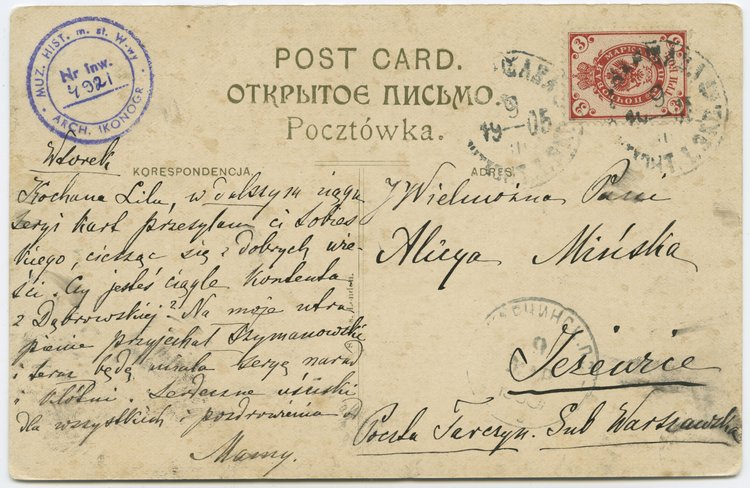 MUZ. HIST. m. st. W-wy
Nr inw.
4921
ARCH. IKONOGR.
POST CARD.
ОТКРЫТОЕ ПИСЬМО.
Pocztówka.
МАРКА
3
3
9
05
KORESPONDENCJA
ADRES
Wtorek
Kochana Lilu, w dalszym ciągu
seryi kart przesyłam ci Sobies
kiego, ciesząc się z dobrych wie
ści. Czy jesteś ciągle kontenta
z Dąbrowskiej? Na moje utra
pienie przyjechał Szymanowski
i teraz będę miała seryę narad
i kłótni. Serdeczne uściski
dla wszystkich i pozdrowienia od
Mamy.
Wielmożna Pani
Alicya Mińska
Jeżewice
Poczta Tarczyn. Gub Warszawska